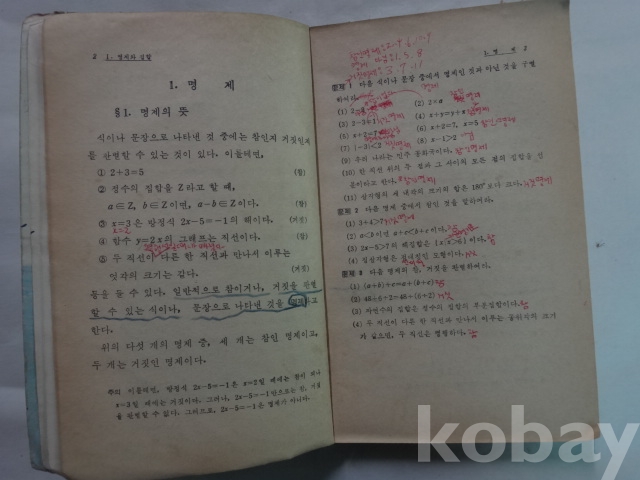 2 1. 명제와 집합
1. 명 제
§1. 명제의 뜻
식이나 문장으로 나타낸 것 중에는 참인지 거짓인지
를 판별할 수 있는 것이 있다. 이를테면,
① 2+3=5 (참)
② 정수의 집합을 Z라고 할 때,
a∈Z, b∈Z이면, a−b∈Z이다. (참)
③ x=3은 방정식 2x−5=−1의 해이다. (거짓)
④ 함수 y=2x의 그래프는 직선이다. (참)
⑤ 두 직선이 다른 한 직선과 만나서 이루는
엇각의 크기는 같다. (거짓)
등을 둘 수 있다. 일반적으로 참이거나, 거짓을 판별
할 수 있는 식이나, 문장으로 나타낸 것을 명제라고
한다.
위의 다섯 개의 명제 중, 세 개는 참인 명제이고,
두 개는 거짓인 명제이다.
주의 이를테면, 방정식 2x−5=−1은 x=2일 때에는 참이 되나
x=3일 때에는 거짓이다. 그러나, 2x−5=−1만으로는 참, 거짓
을 판별할 수 없다. 그러므로, 2x−5=−1은 명제가 아니다.
1. 명 제 3
1 다음 식이나 문장 중에서 명제인 것과 아닌 것을 구별
하여라.
(1) (2) 2=a
(3) 2−3=1 (4) x+y=y+x
(5) (6) x+2=7, x=5
(7) |−3|<2 (8) x−1>2
(9) 우리 나라는 민주 공화국이다.
(10) 한 직선 위의 두 점과 그 사이의 모든 점의 집합을 선
분이라고 한다.
(11) 삼각형의 세 내각의 크기의 합은 180°보다 크다.
2 다음 명제 중에서 참인 것을 말하여라.
(1) 3+4>7
(2) a<b이면 a+c<b+c이다.
(3) 2x−6>7의 해집합은 이다.
(4)
3 다음 명제의 참, 거짓을 판별하여라.
(1) (a+b)+c=a+(b+c)
(2)
(3) 자연수의 집합은 정수의 집합의 부분집합이다.
(4) 두 직선이 다른 한 직선과 만나서 이루는 동위각의 크기
가 같으면, 두 직선은 평행하다.
kobay